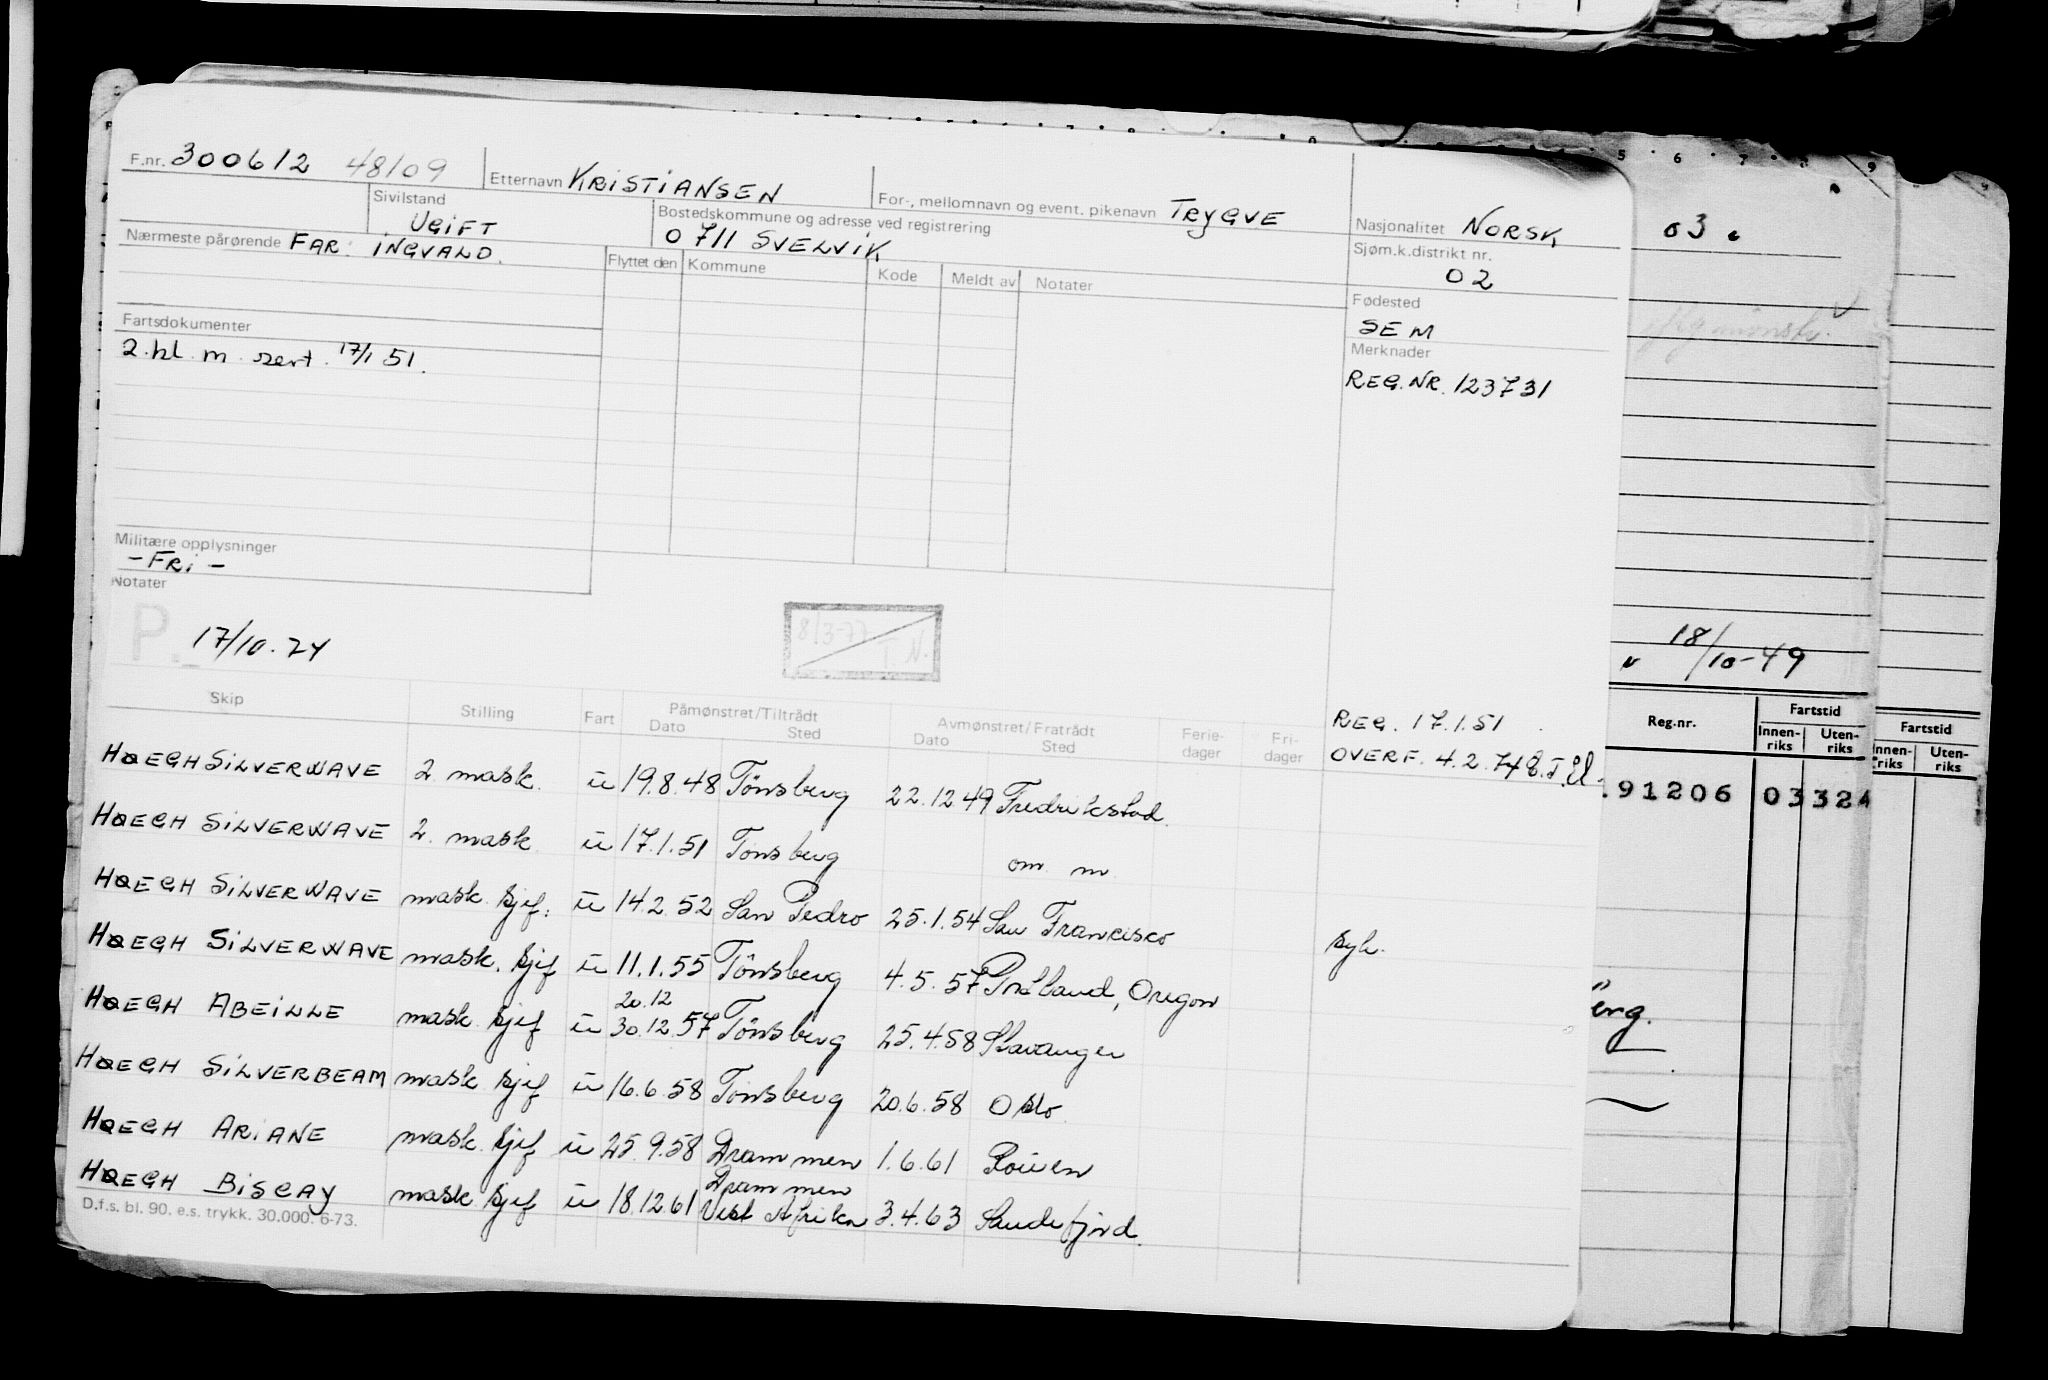 F.nr. 300612 48109 Etternavn KRISTIANSEN For-, mellomnavn og event. pikenavn TRYGVE Nasjonalitet NORSK
Sivilstand UGIFT Bostedskommune og adresse ved registrering 0711 SVELVIK Sjøm.k.distrikt nr. 02
Nærmeste pårørende FAR: INGVALD. Flyttet den Kommune Kode Meldt av Notater Fødested
SEM
Fartsdokumenter Merknader
2. kl. m. sert. 17/1 51. REG.NR. 123731
Militære opplysninger
- FRI -
Notater
P. 17/10.74 8/3-77 T.N.
REG. 17.1.51
OVERF. 4.2.74
Skip Stilling Fart Påmønstret/Tiltrådt Avmønstret/Fratrådt Ferie- Fri-
Dato Sted Dato Sted dager dager
HØEGH SILVERWAVE 2. mask. u 19.8.48 Tönsberg 22.12.49 Fredrikstad.
HØEGH SILVERWAVE 2. mask u 17.1.51 Tönsberg om m.
HØEGH SILVERWAVE mask. sjef: u 14.2.52 San Pedro 25.1.54 San Francisco syk.
HØEGH SILVERWAVE mask. sjef u 11.1.55 Tönsberg 4.5.57 Portland, Oregon
20.12
HØEGH ABEILLE mask sjef u 30.12.57 Tönsberg 25.4.58 Stavanger
HØEGH SILVERBEAM mask sjef u 16.6.58 Tönsberg 20.6.58 Oslo.
HØEGH ARIANE mask. sjef u 25.9.58 Drammen 1.6.61 Rouen
Drammen
HØEGH BISCAY mask sjef u 18.12.61 Vest Afrika 3.4.63 Sandefjord.
D.f.s. bl. 90. e.s. trykk. 30.000. 6-73.
5 6 7 9
03.
18/10-49
Reg.nr. Fartstid Fartstid
Innen- Uten- Innen- Uten-
riks riks riks riks
91206 03324
erg.